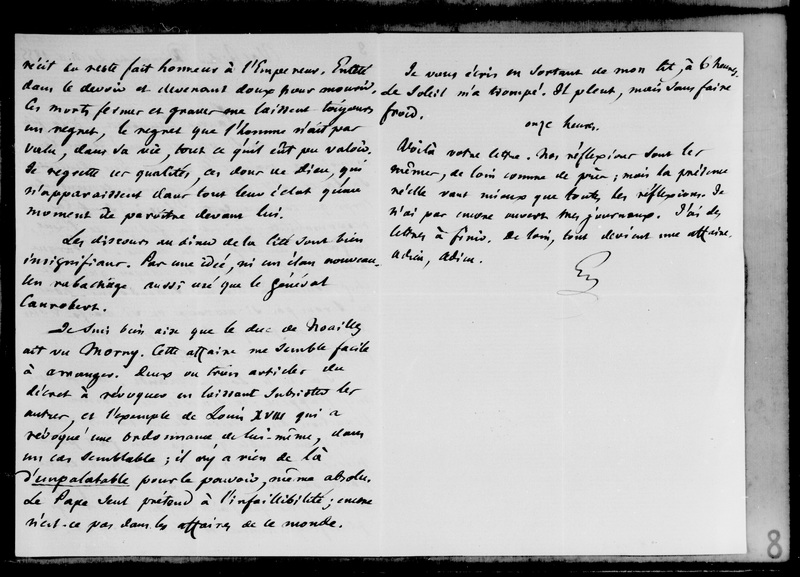 récit du reste fait honneur à l'Empereur. Entêté
dans le devoir et devenant doux pour mourir.
Ces morts fermes et graves me laissent toujours
un regret, le regret que l'homme n'ait pas
valu, dans sa vie, tout ce qu'il eût pu valoir.
Je regrette ces qualités, ces dons de Dieu, qui
n'apparaissent dans tout leur éclat qu'au
moment de paroître devant lui.
Les discours au dîner de la Cité sont bien
insignifians. Pas une idée, ni un élan nouveau.
Un rabachage aussi usé que le général
Canrobert.
Je suis bien aise que le duc de Noailles
ait vu Morny. Cette affaire me semble facile
à arranger. Deux ou trois articles du
décret à révoquer en laissant subsister les
autres, et l'exemple de Louis XVIII qui a
révoqué une ordonnance de lui-même, dans
un cas semblable ; il n'y a rien de là
d'unpalatable pour le pouvoir, même absolu.
Le Pape seul prétend à l'infaillibilité ; encore
n'est-ce pas dans les affaires de ce monde.
Je vous écris en sortant de mon lit, à 6 heures.
Le Soleil m'a trompé. Il pleut, mais sans faire
froid.
onze heures.
Voilà votre lettre. Nos réflexions sont les
mêmes, de loin comme de près ; mais la présence
réelle vaut mieux que toutes les réflexions. Je
n'ai pas encore ouvert mes journaux. J'ai des
lettres à finir. De loin, tout devient une affaire.
Adieu, Adieu.
8